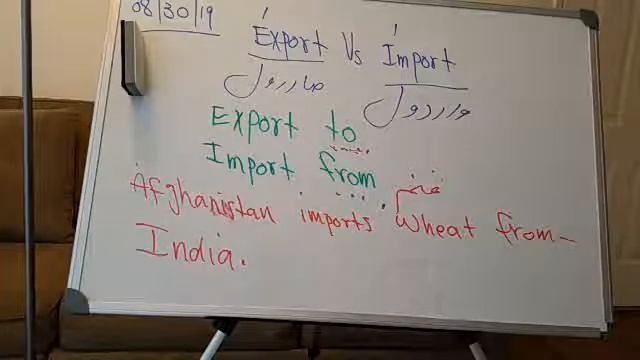 08/30/19
Export Vs Import
صادرول واردول
Export to
Import from
غنم
Afghanistan imports wheat from
India.